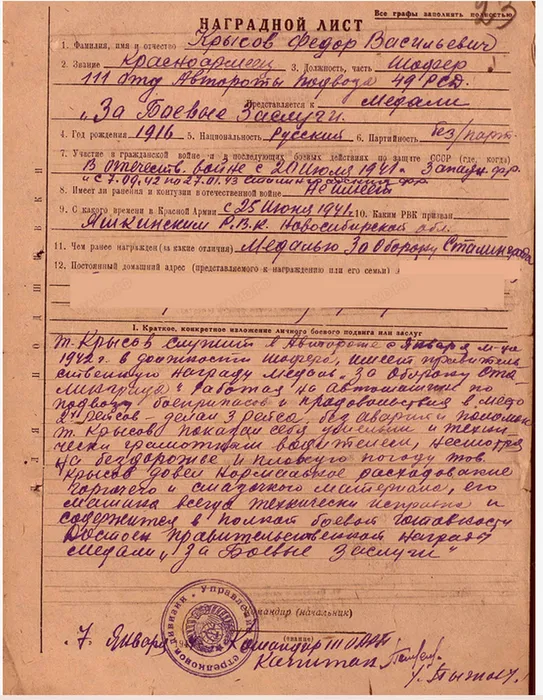 Все графы заполнить полностью
23
НАГРАДНОЙ ЛИСТ
1. Фамилия, имя и отчество Крысов Федор Васильевич
2. Звание Красноармеец 3. Должность, часть Шофер
111 отд Автороты Подвоза 49 РСД.
Представляется к Медали
„За Боевые Заслуги.
4. Год рождения 1916 5. Национальность Русский 6. Партийность без/парт.
7. Участие в гражданской войне и в последующих боевых действиях по защите СССР (где, когда)
В отечеств. войне с 20 июля 1941. Западн. фр.
и с 7.09.42 по 27.01.43 Сталинград фр.
8. Имеет ли ранения и контузии в отечественной войне Не имеет
9. С какого времени в Красной Армии с 25 июня 1941г. 10. Каким РВК призван
Яшкинским Р.В.К. Новосибирской обл.
11. Чем ранее награжден (за какие отличия) Медалью За Оборону Сталинграда
12. Постоянный домашний адрес (представляемого к награждению или его семьи)
I. Краткое, конкретное изложение личного боевого подвига или заслуг
т. Крысов служит в Автороте с Января м-ца
1942 г. в должности шофера, имеет правитель
ственную награду медаль „За Оборону Ста-
линграда" Работая на автомашине по
подвозу боеприпасов и продовольствия в место
2х рейсов - делал 3 рейса, без аварий и поломок
т. Крысов показал себя умелым и техни-
чески грамотным водителем, несмотря
на бездорожье и плохую погоду тов.
Крысов довел нормальное расходование
горючего и смазочного материала, его
машина всегда технически исправна и
содержится в полной боевой готовности
Достоин правительственной награды
медали „За Боевые Заслуги"
Командир (начальник)
7. Января Командир 111
(звание)
Капитан
Управление
стрелковой дивизии